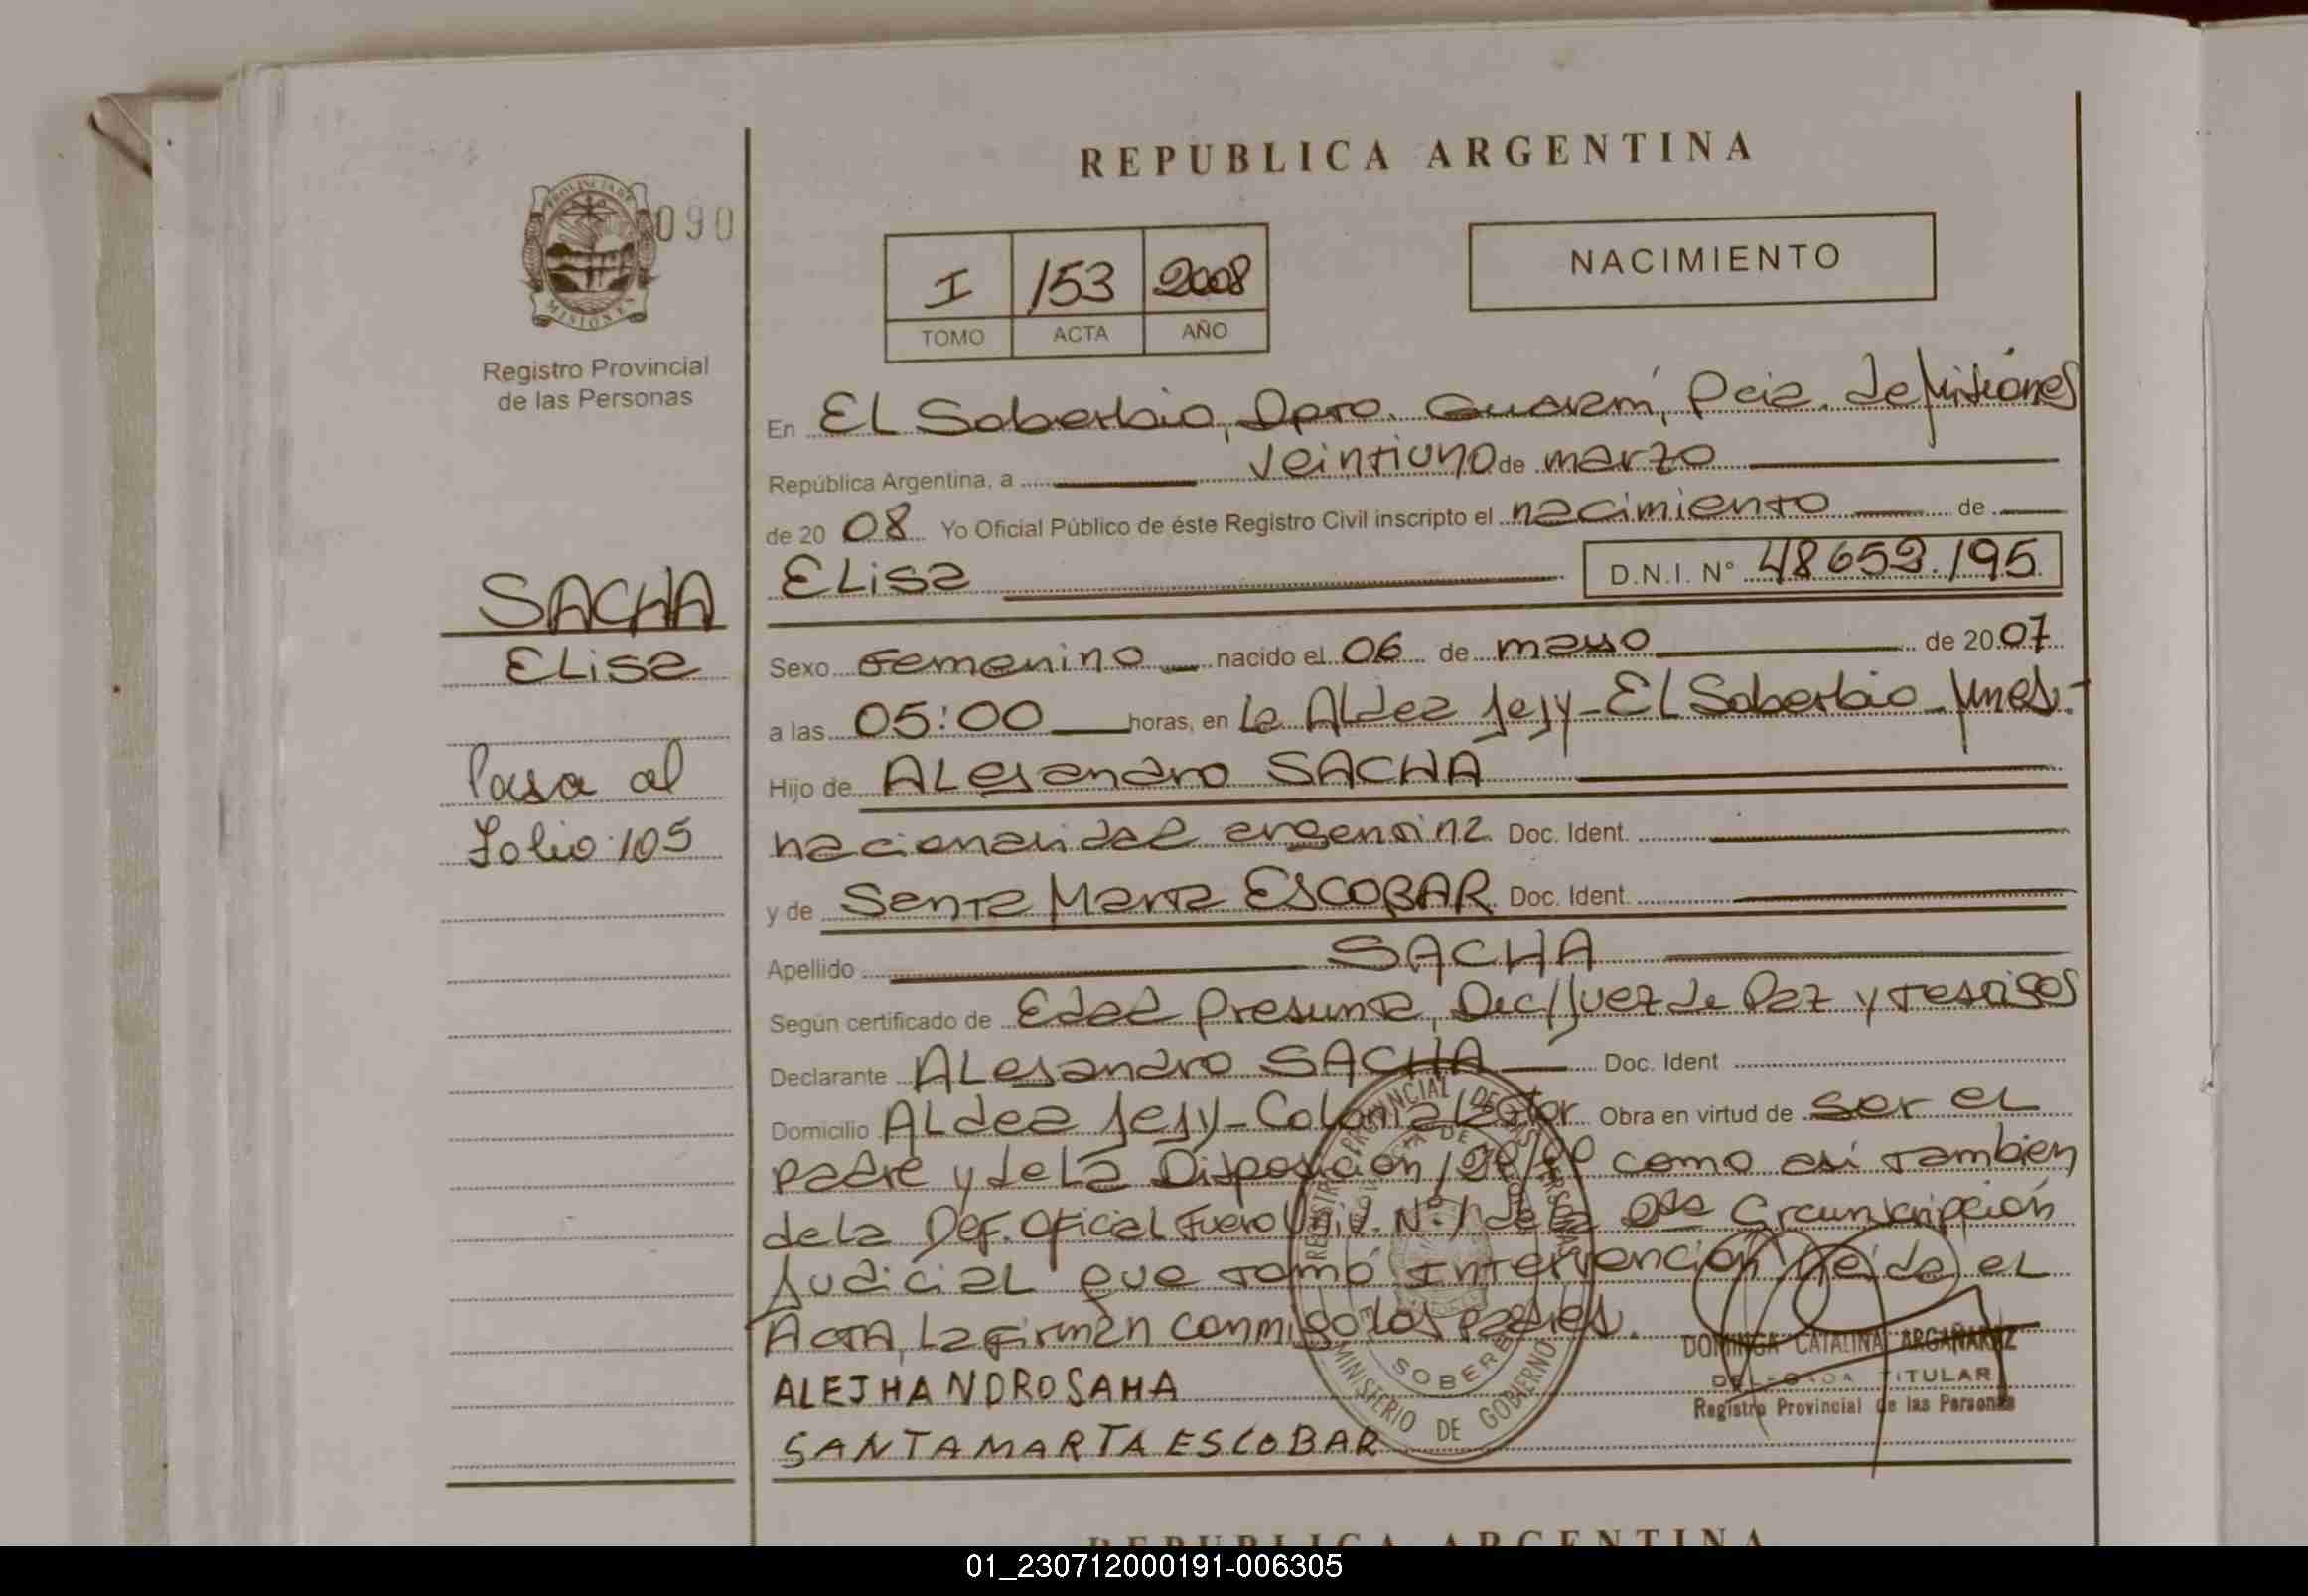 REPUBLICA ARGENTINA
PROVINCIA DE
MISIONES
090
Registro Provincial
de las Personas
I 153 2008
TOMO ACTA AÑO
NACIMIENTO
En El Soberbio, Dpto. Guaraní, Pcia. de Misiones
República Argentina, a veintiuno de marzo
de 2008 Yo Oficial Público de éste Registro Civil inscripto el nacimiento de
Elisa D.N.I. N° 48652.195
SACHA
Elisa
Pasa al
Folio 105
Sexo Femenino nacido el 06 de mayo de 2007
a las 05:00 horas, en la Aldea Jejy - El Soberbio - Mnes.-
Hijo de Alejandro SACHA
nacionalidad argentina Doc. Ident.
y de Santa Marta ESCOBAR Doc. Ident.
Apellido SACHA
Según certificado de Edad Presunta, Dec/Juez de Paz y testigos
Declarante Alejandro SACHA Doc. Ident
Domicilio Aldea Jejy - Colonia Obra en virtud de ser el
padre y de la Disposición como así también
de la Def. Oficial Fuero Univ. N° 1 de la 2da Circunscripción
Judicial que tomó intervención leída el
Acta, la firman conmigo los padres.
ALEJHANDRO SAHA
SANTA MARTA ESCOBAR
REGISTRO PROVINCIAL DE LAS PERSONAS
MINISTERIO DE GOBIERNO
DOMINGA CATALINA ARGAÑARAZ
DELEGADA TITULAR
Registro Provincial de las Personas
REPUBLICA ARGENTINA
01_230712000191-006305